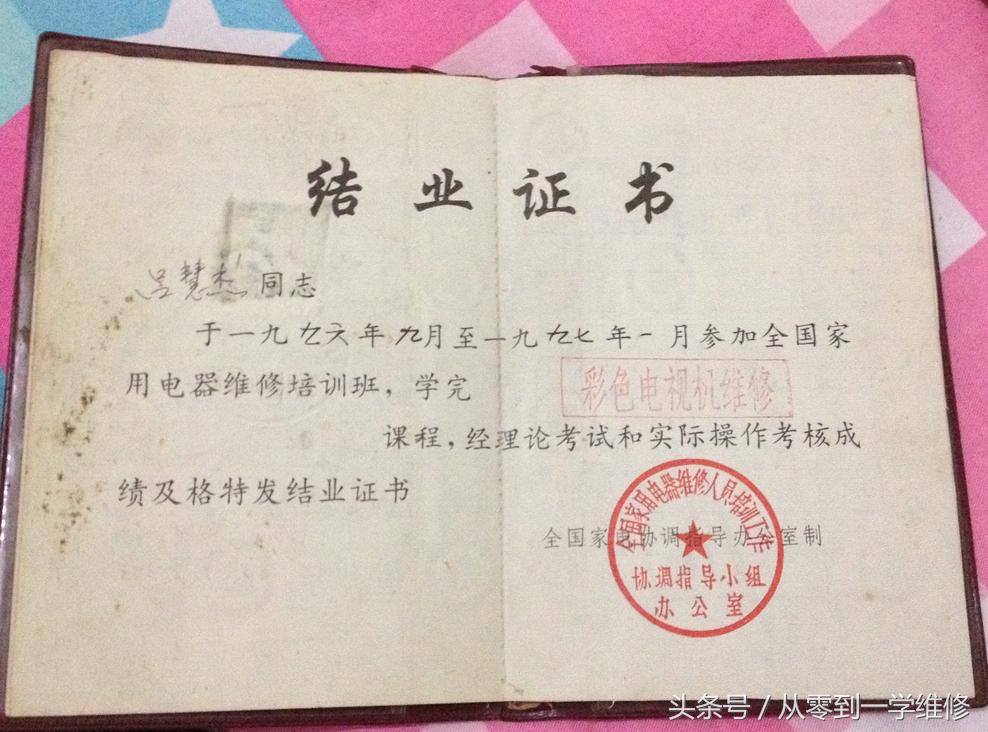 结业证书
吕慧杰同志
于一九九六年九月至一九九七年一月参加全国家
用电器维修培训班，学完
彩色电视机维修
课程，经理论考试和实际操作考核成
绩及格特发结业证书
全国家电协调指导办公室制
全国家用电器维修人员培训工作
协调指导小组
办公室
头条号／从零到一学维修